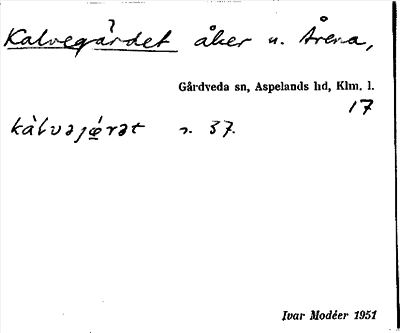 Kalvegärdet åker u. Årena,
Gårdveda sn, Aspelands hd, Klm. l.
17
kàlvəjǽrət n. 37.
Ivar Modéer 1951